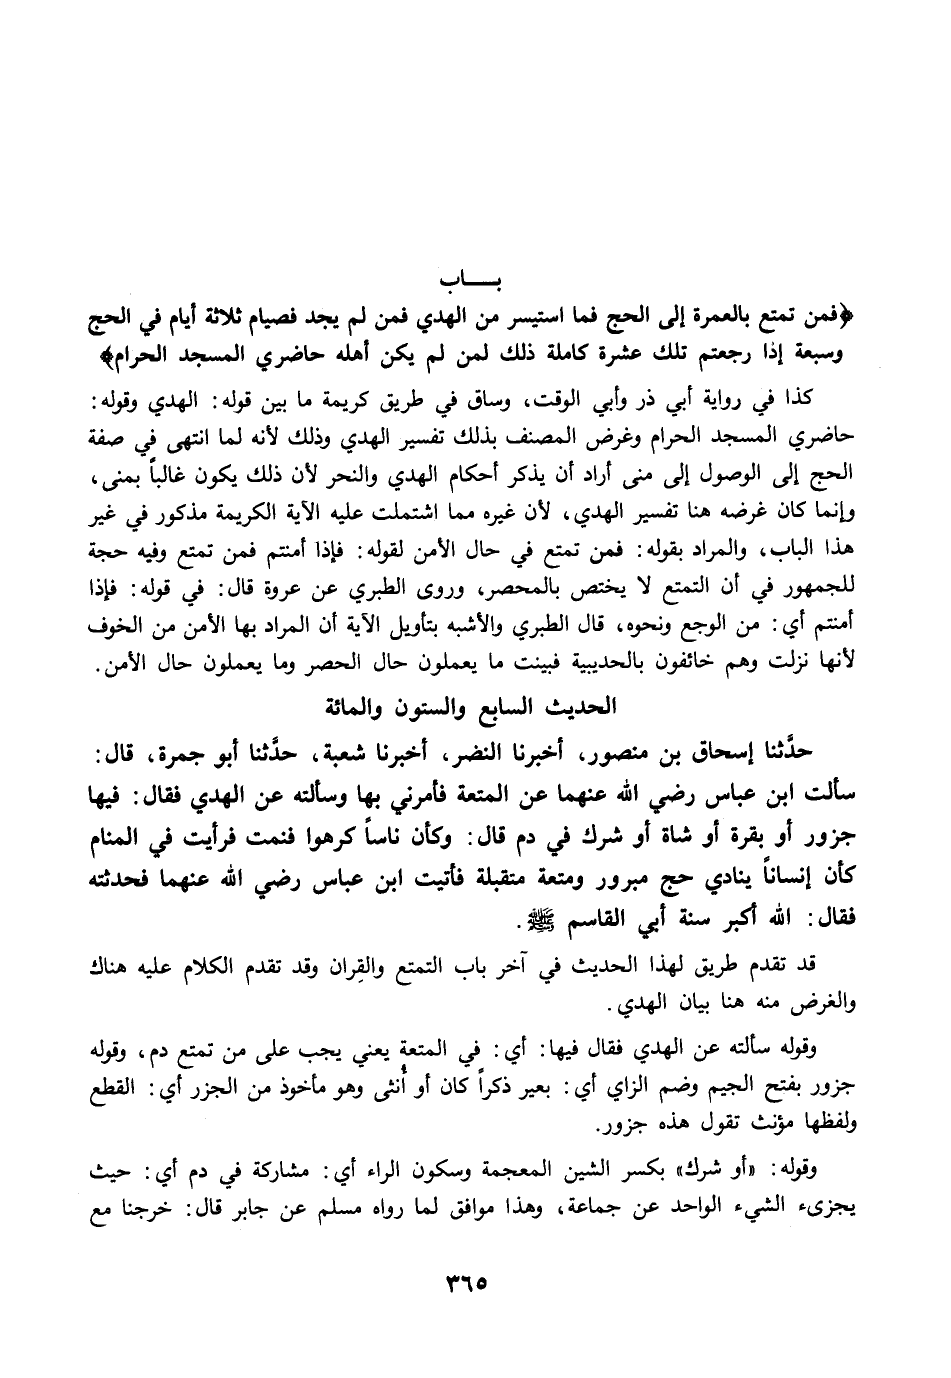 بـــاب
﴿فمن تمتع بالعمرة إلى الحج فما استيسر من الهدي فمن لم يجد فصيام ثلاثة أيام في الحج
وسبعة إذا رجعتم تلك عشرة كاملة ذلك لمن لم يكن أهله حاضري المسجد الحرام﴾
كذا في رواية أبي ذر وأبي الوقت، وساق في طريق كريمة ما بين قوله: الهدي وقوله:
حاضري المسجد الحرام وغرض المصنف بذلك تفسير الهدي وذلك لأنه لما انتهى في صفة
الحج إلى الوصول إلى منى أراد أن يذكر أحكام الهدي والنحر لأن ذلك يكون غالباً بمنى،
وإنما كان غرضه هنا تفسير الهدي، لأن غيره مما اشتملت عليه الآية الكريمة مذكور في غير
هذا الباب، والمراد بقوله: فمن تمتع في حال الأمن لقوله: فإذا أمنتم فمن تمتع وفيه حجة
للجمهور في أن التمتع لا يختص بالمحصر، وروى الطبري عن عروة قال: في قوله: فإذا
أمنتم أي: من الوجع ونحوه، قال الطبري والأشبه بتأويل الآية أن المراد بها الأمن من الخوف
لأنها نزلت وهم خائفون بالحديبية فبينت ما يعملون حال الحصر وما يعملون حال الأمن.
الحديث السابع والستون والمائة
حدَّثنا إسحاق بن منصور، أخبرنا النضر، أخبرنا شعبة، حدَّثنا أبو جمرة، قال:
سألت ابن عباس رضي الله عنهما عن المتعة فأمرني بها وسألته عن الهدي فقال: فيها
جزور أو بقرة أو شاة أو شرك في دم قال: وكأن ناساً كرهوا فنمت فرأيت في المنام
كأن إنساناً ينادي حج مبرور ومتعة متقبلة فأتيت ابن عباس رضي الله عنهما فحدثته
فقال: الله أكبر سنة أبي القاسم ﷺ.
قد تقدم طريق لهذا الحديث في آخر باب التمتع والقِران وقد تقدم الكلام عليه هناك
والغرض منه هنا بيان الهدي.
وقوله سألته عن الهدي فقال فيها: أي: في المتعة يعني يجب على من تمتع دم، وقوله
جزور بفتح الجيم وضم الزاي أي: بعير ذكراً كان أو أُنثى وهو مأخوذ من الجزر أي: القطع
ولفظها مؤنث تقول هذه جزور.
وقوله: «أو شرك» بكسر الشين المعجمة وسكون الراء أي: مشاركة في دم أي: حيث
يجزىء الشيء الواحد عن جماعة، وهذا موافق لما رواه مسلم عن جابر قال: خرجنا مع
٣٦٥